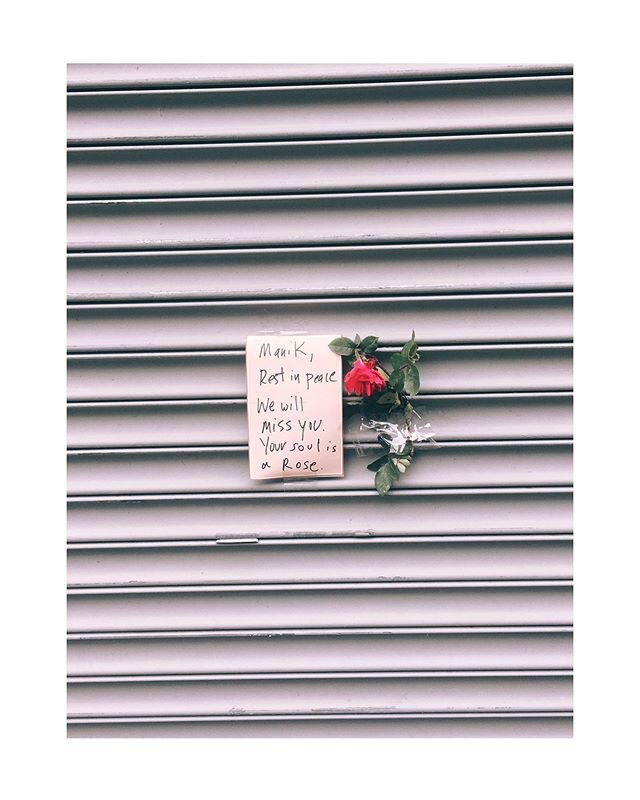 Manik,
Rest in peace
We will
miss you.
Your soul is
a Rose.